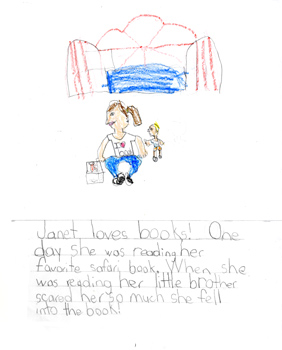 Janet loves books! One
day she was reading her
favorite safari book. When she
was reading her little brother
scared her so much she fell
into the book!